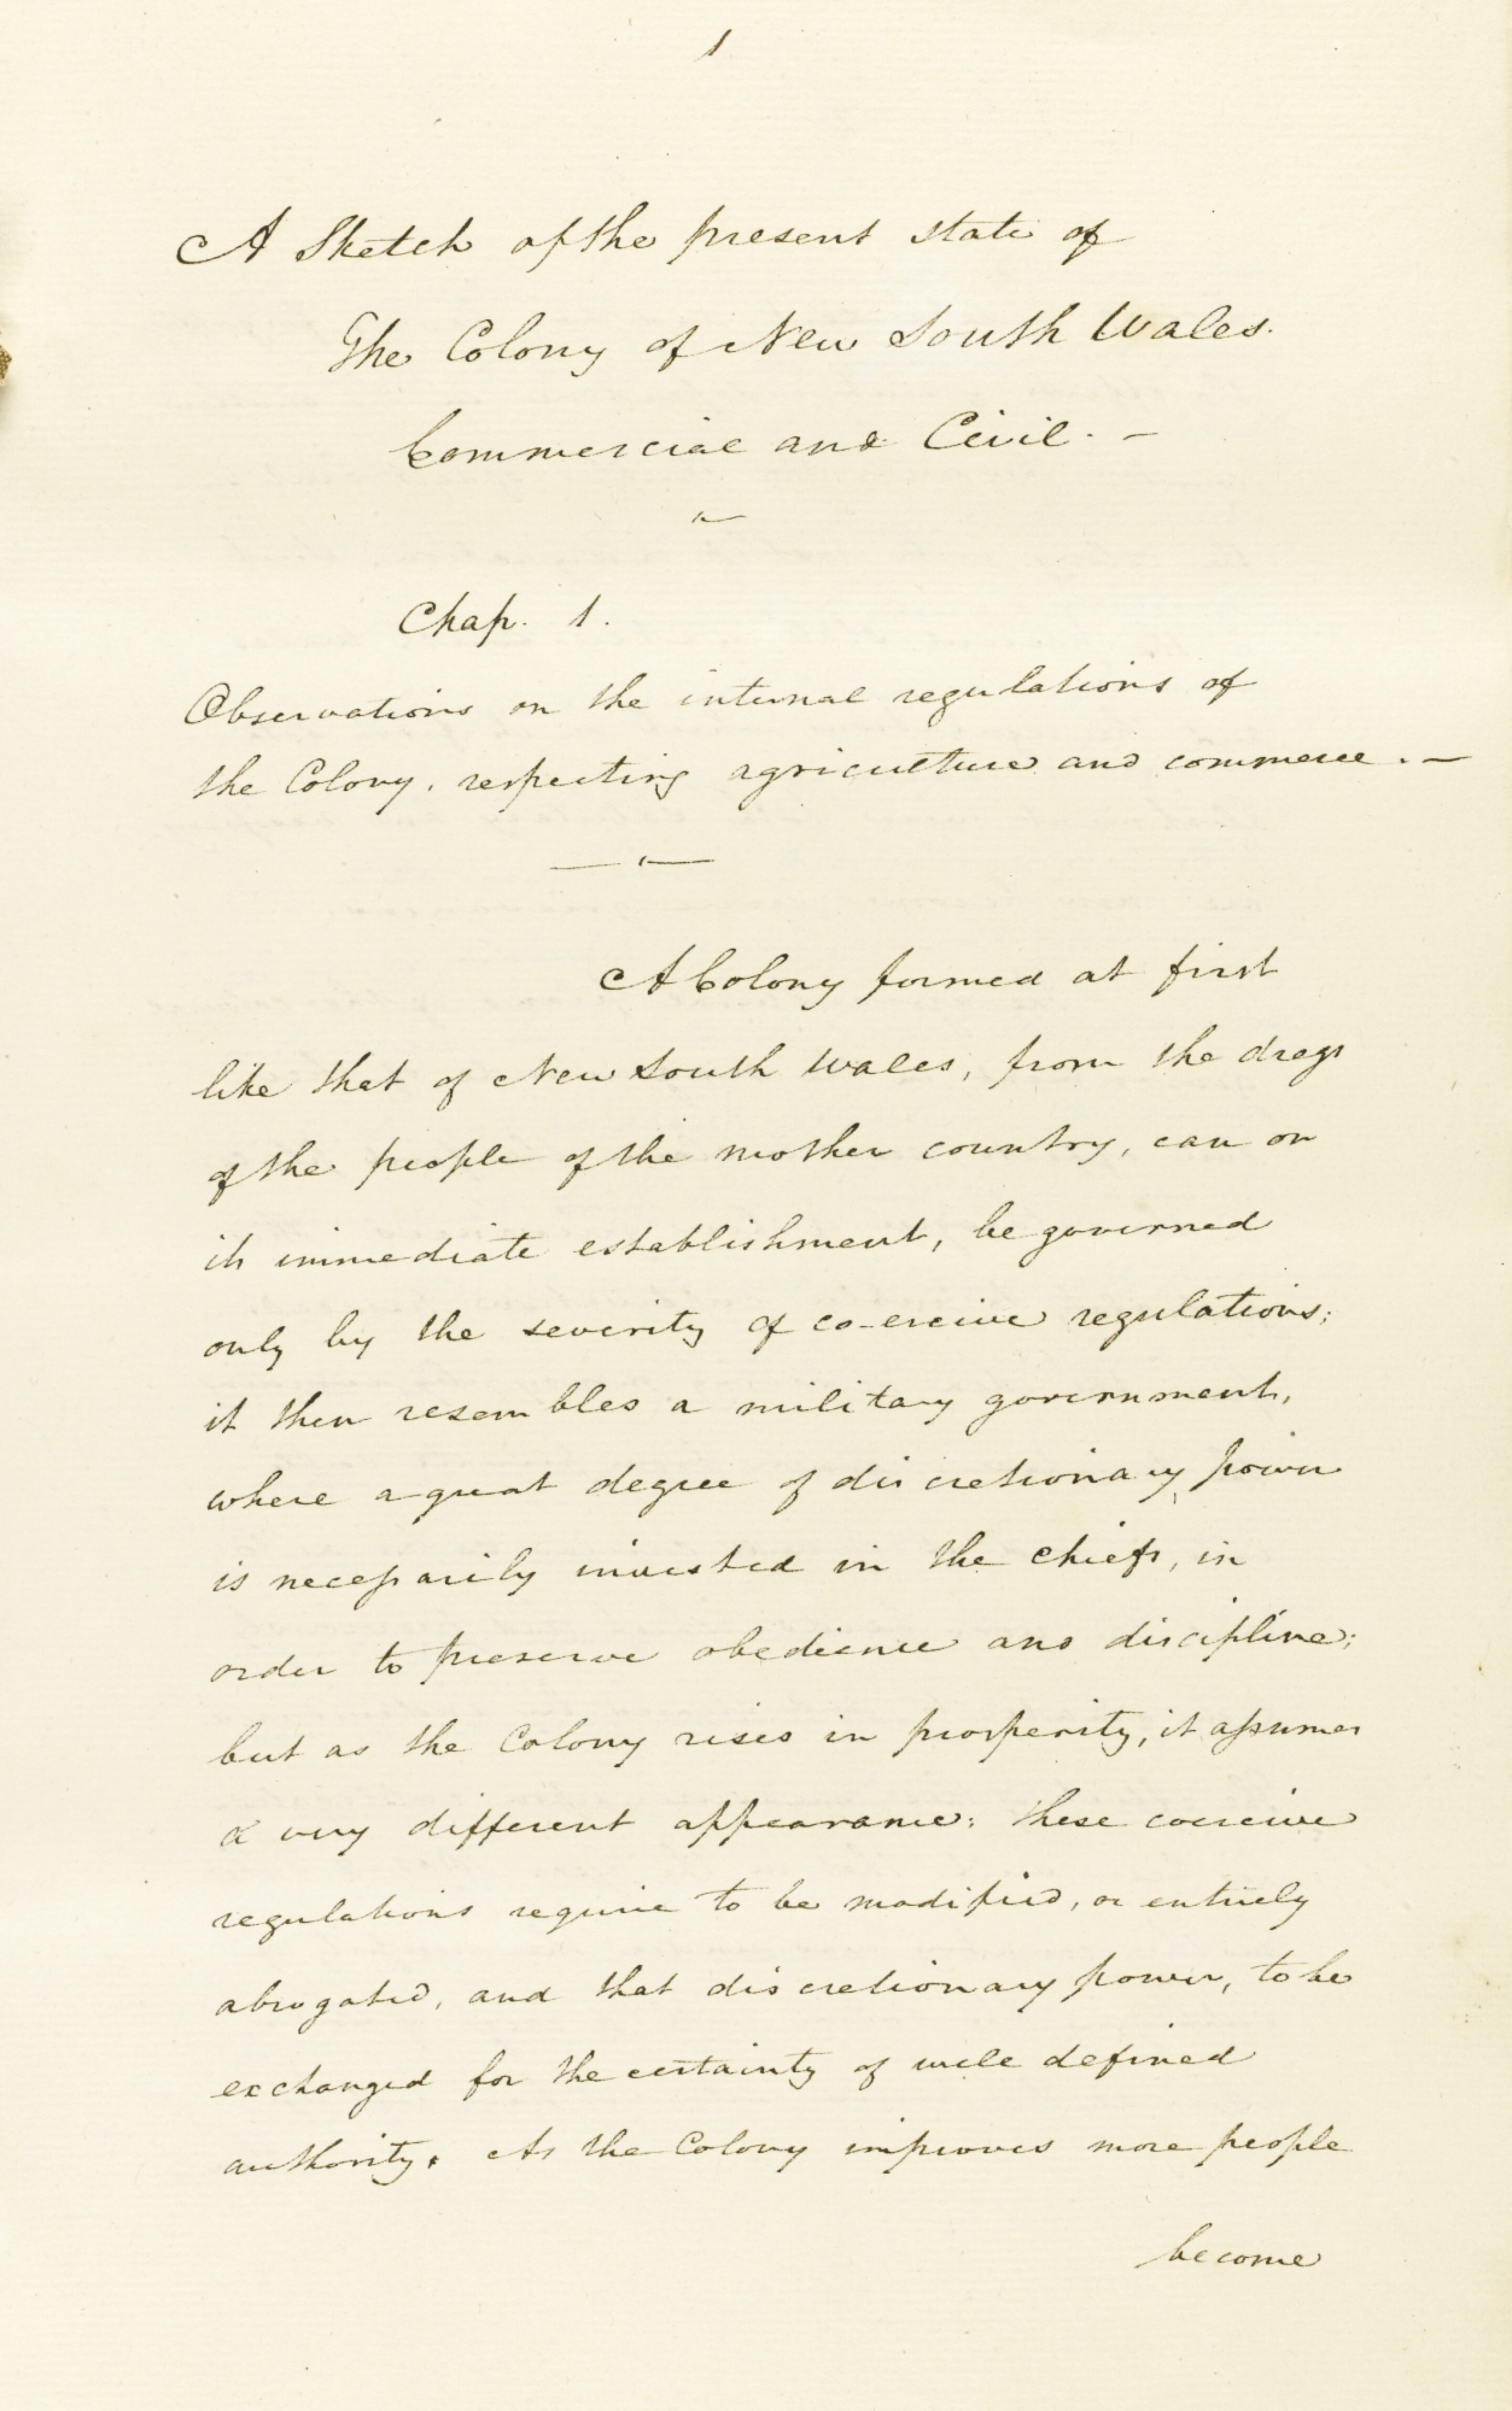 1
A Sketch of the present state of
The Colony of New South Wales.
Commercial and Civil. -
Chap. 1.
Observations on the internal regulations of
the Colony, respecting agriculture and commerce. -
A Colony formed at first
like that of New South Wales, from the dregs
of the people of the mother country, can on
its immediate establishment, be governed
only by the severity of co-ercive regulations;
it then resembles a military government,
where a great degree of discretionary power
is necessarily invested in the chiefs, in
order to preserve obedience and discipline;
but as the Colony rises in prosperity, it assumes
a very different appearance: these coercive
regulations require to be modified, or entirely
abrogated, and that discretionary power, to be
exchanged for the certainty of well defined
authority. As the Colony improves more people
become